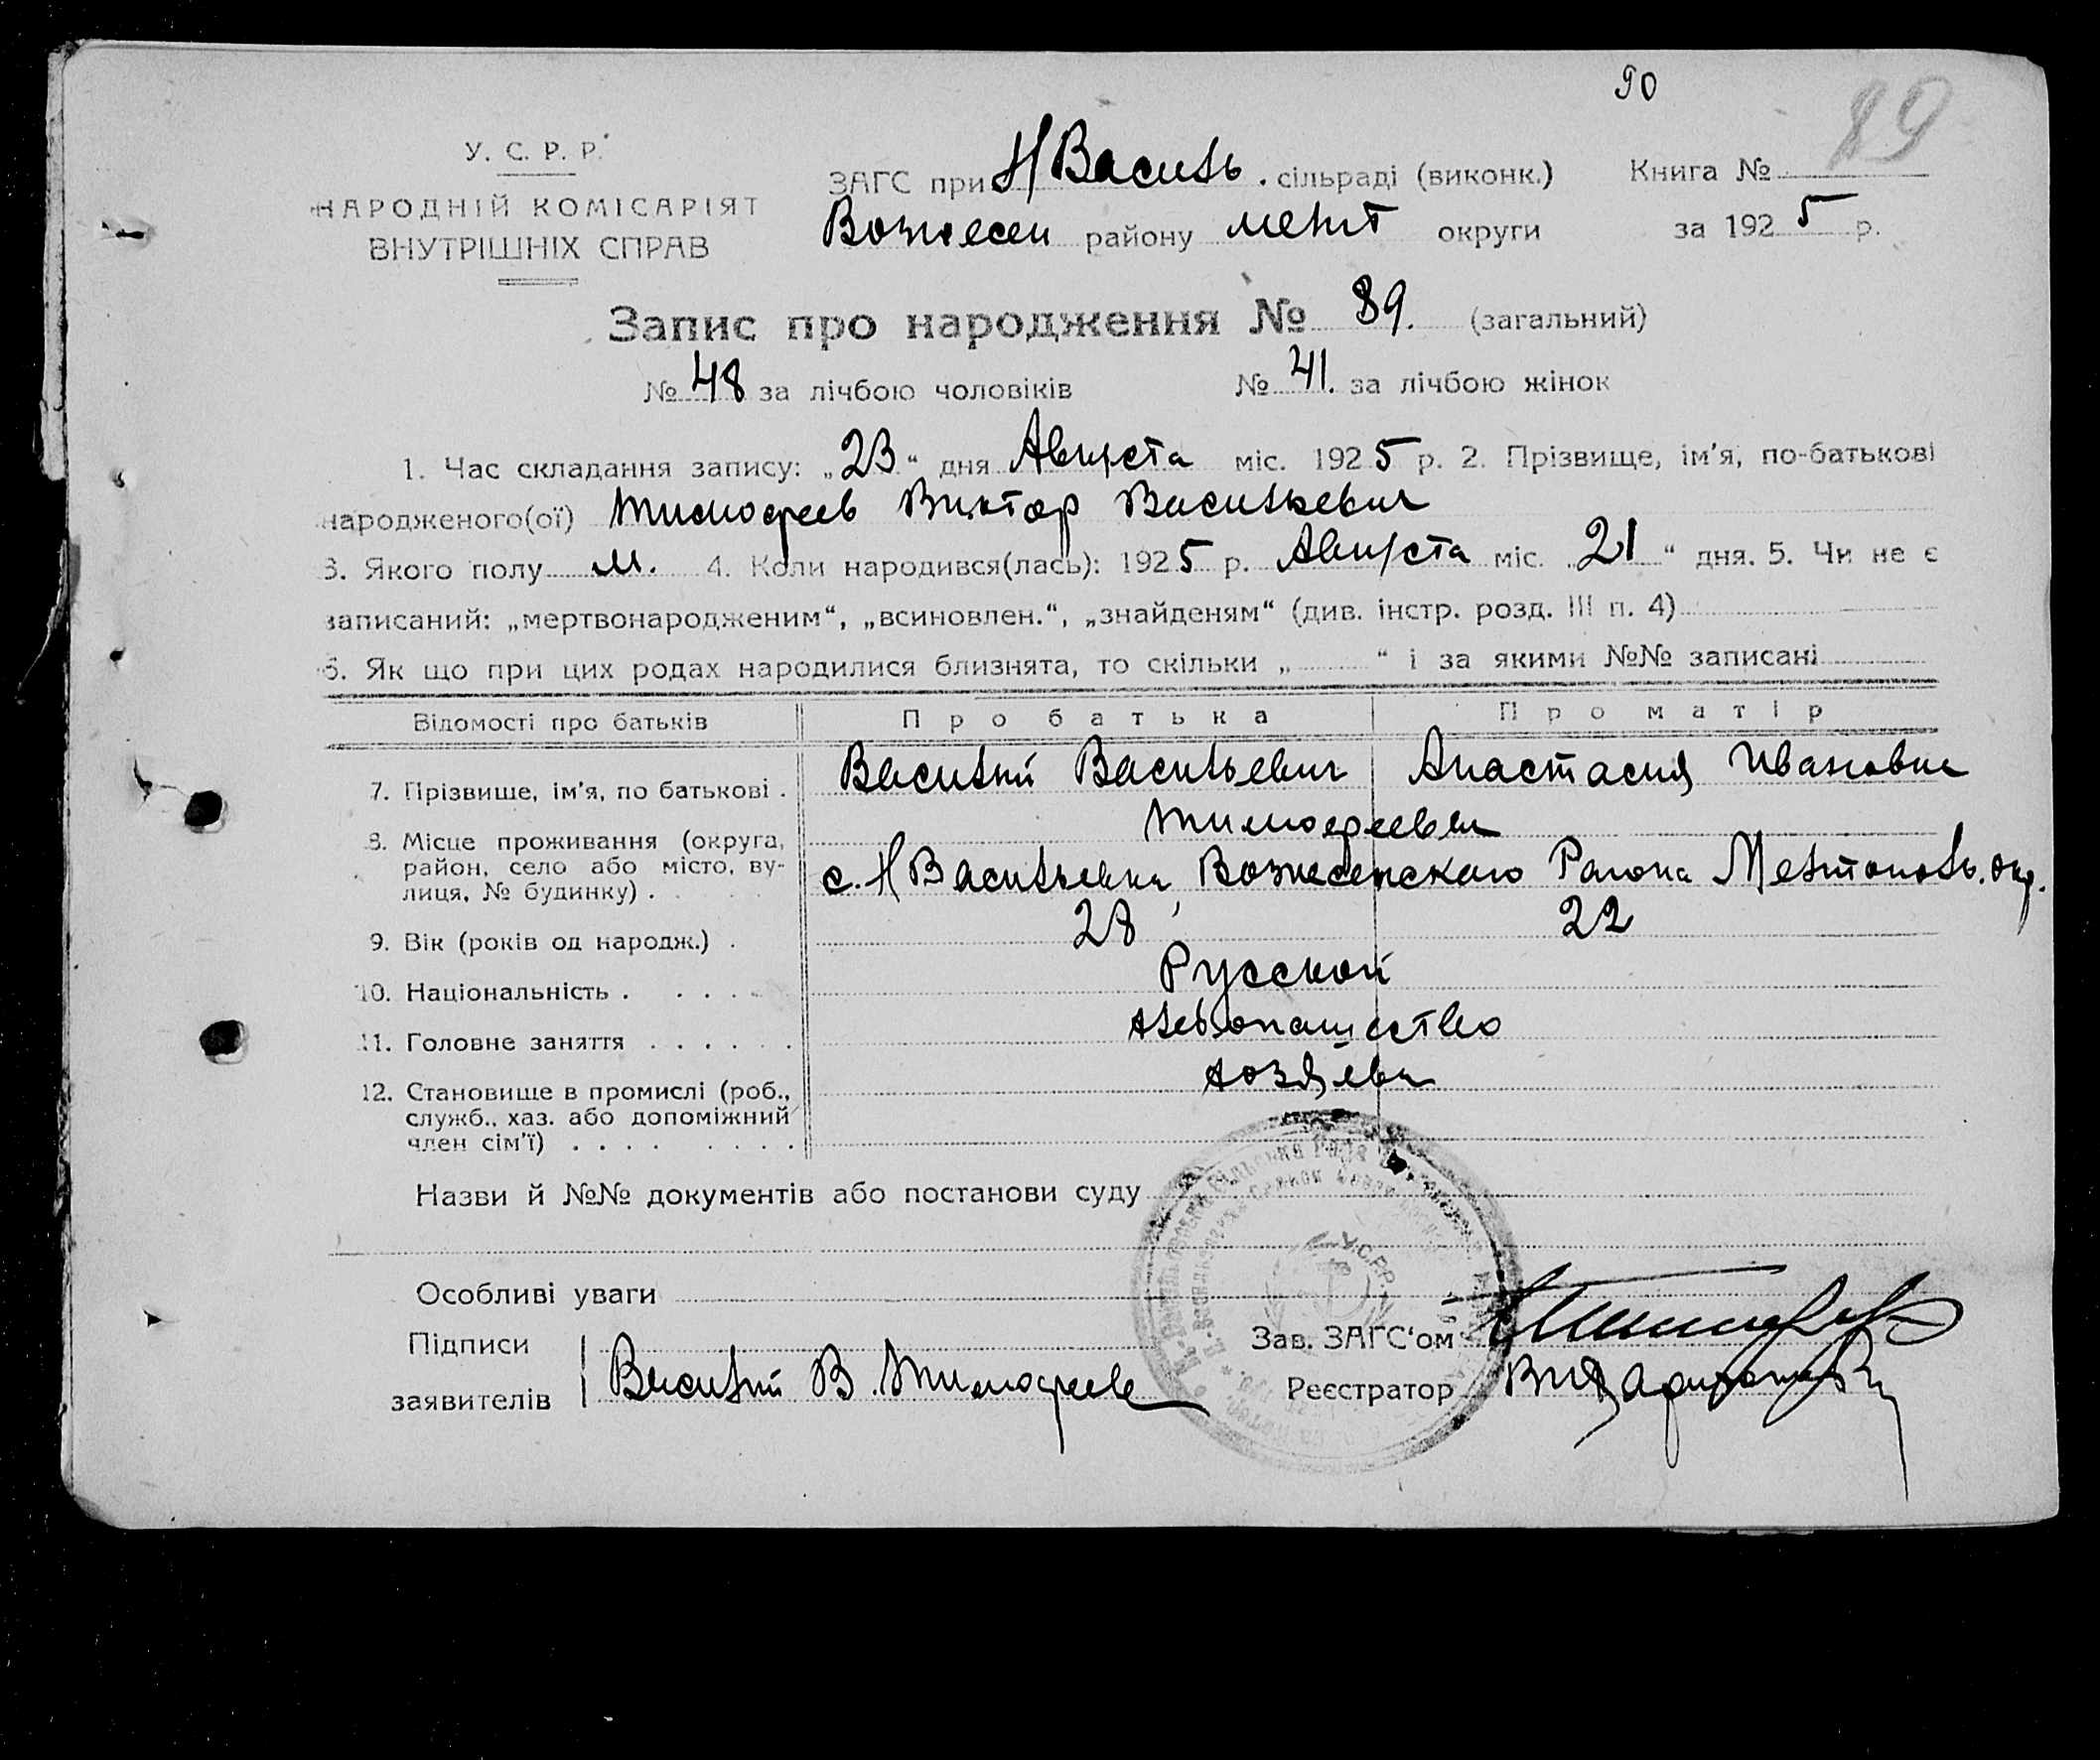 90
89
У. С. Р. Р.
НАРОДНІЙ КОМІСАРІЯТ
ВНУТРІШНІХ СПРАВ
ЗАГС при Н Василь. сільраді (виконк.) Книга №
Вознесен району мелит округи за 1925 р.
Запис про народження № 89. (загальний)
№ 48 за лічбою чоловіків № 41. за лічбою жінок
1. Час складання запису: „23“ дня Августа міс. 1925 р. 2. Прізвище, ім’я, по-батькові
народженого(ої) Тимофеев Виктор Васильевич
3. Якого полу м. 4. Коли народився(лась): 1925 р. Августа міс. „21“ дня. 5. Чи не є
записаний: „мертвонародженим“, „всиновлен.“, „знайденям“ (див. інстр. розд. III п. 4)
6. Як що при цих родах народилися близнята, то скільки „ “ і за якими №№ записані
Відомості про батьків Про батька Про матір
7. Прізвище, ім’я, по батькові . Василий Васильевич Анастасия Ивановна
Тимофеевы
8. Місце проживання (округа,
район, село або місто, ву-
лиця, № будинку) . с. Н Васильевка, Вознесенскаго Района Мелитополь. окр.
9. Вік (років од народж.) . 28 22
10. Національність . . . . . Русской
11. Головне заняття . . . . . . хлебопашество
12. Становище в промислі (роб., хозяева
служб., хаз. або допоміжний
член сім’ї) . . . . . . . . .
Назви й №№ документів або постанови суду
У.С.Р.Р.
Особливі уваги
Підписи Зав. ЗАГС‘ом
заявителів Василий В. Тимофеев Реєстратор